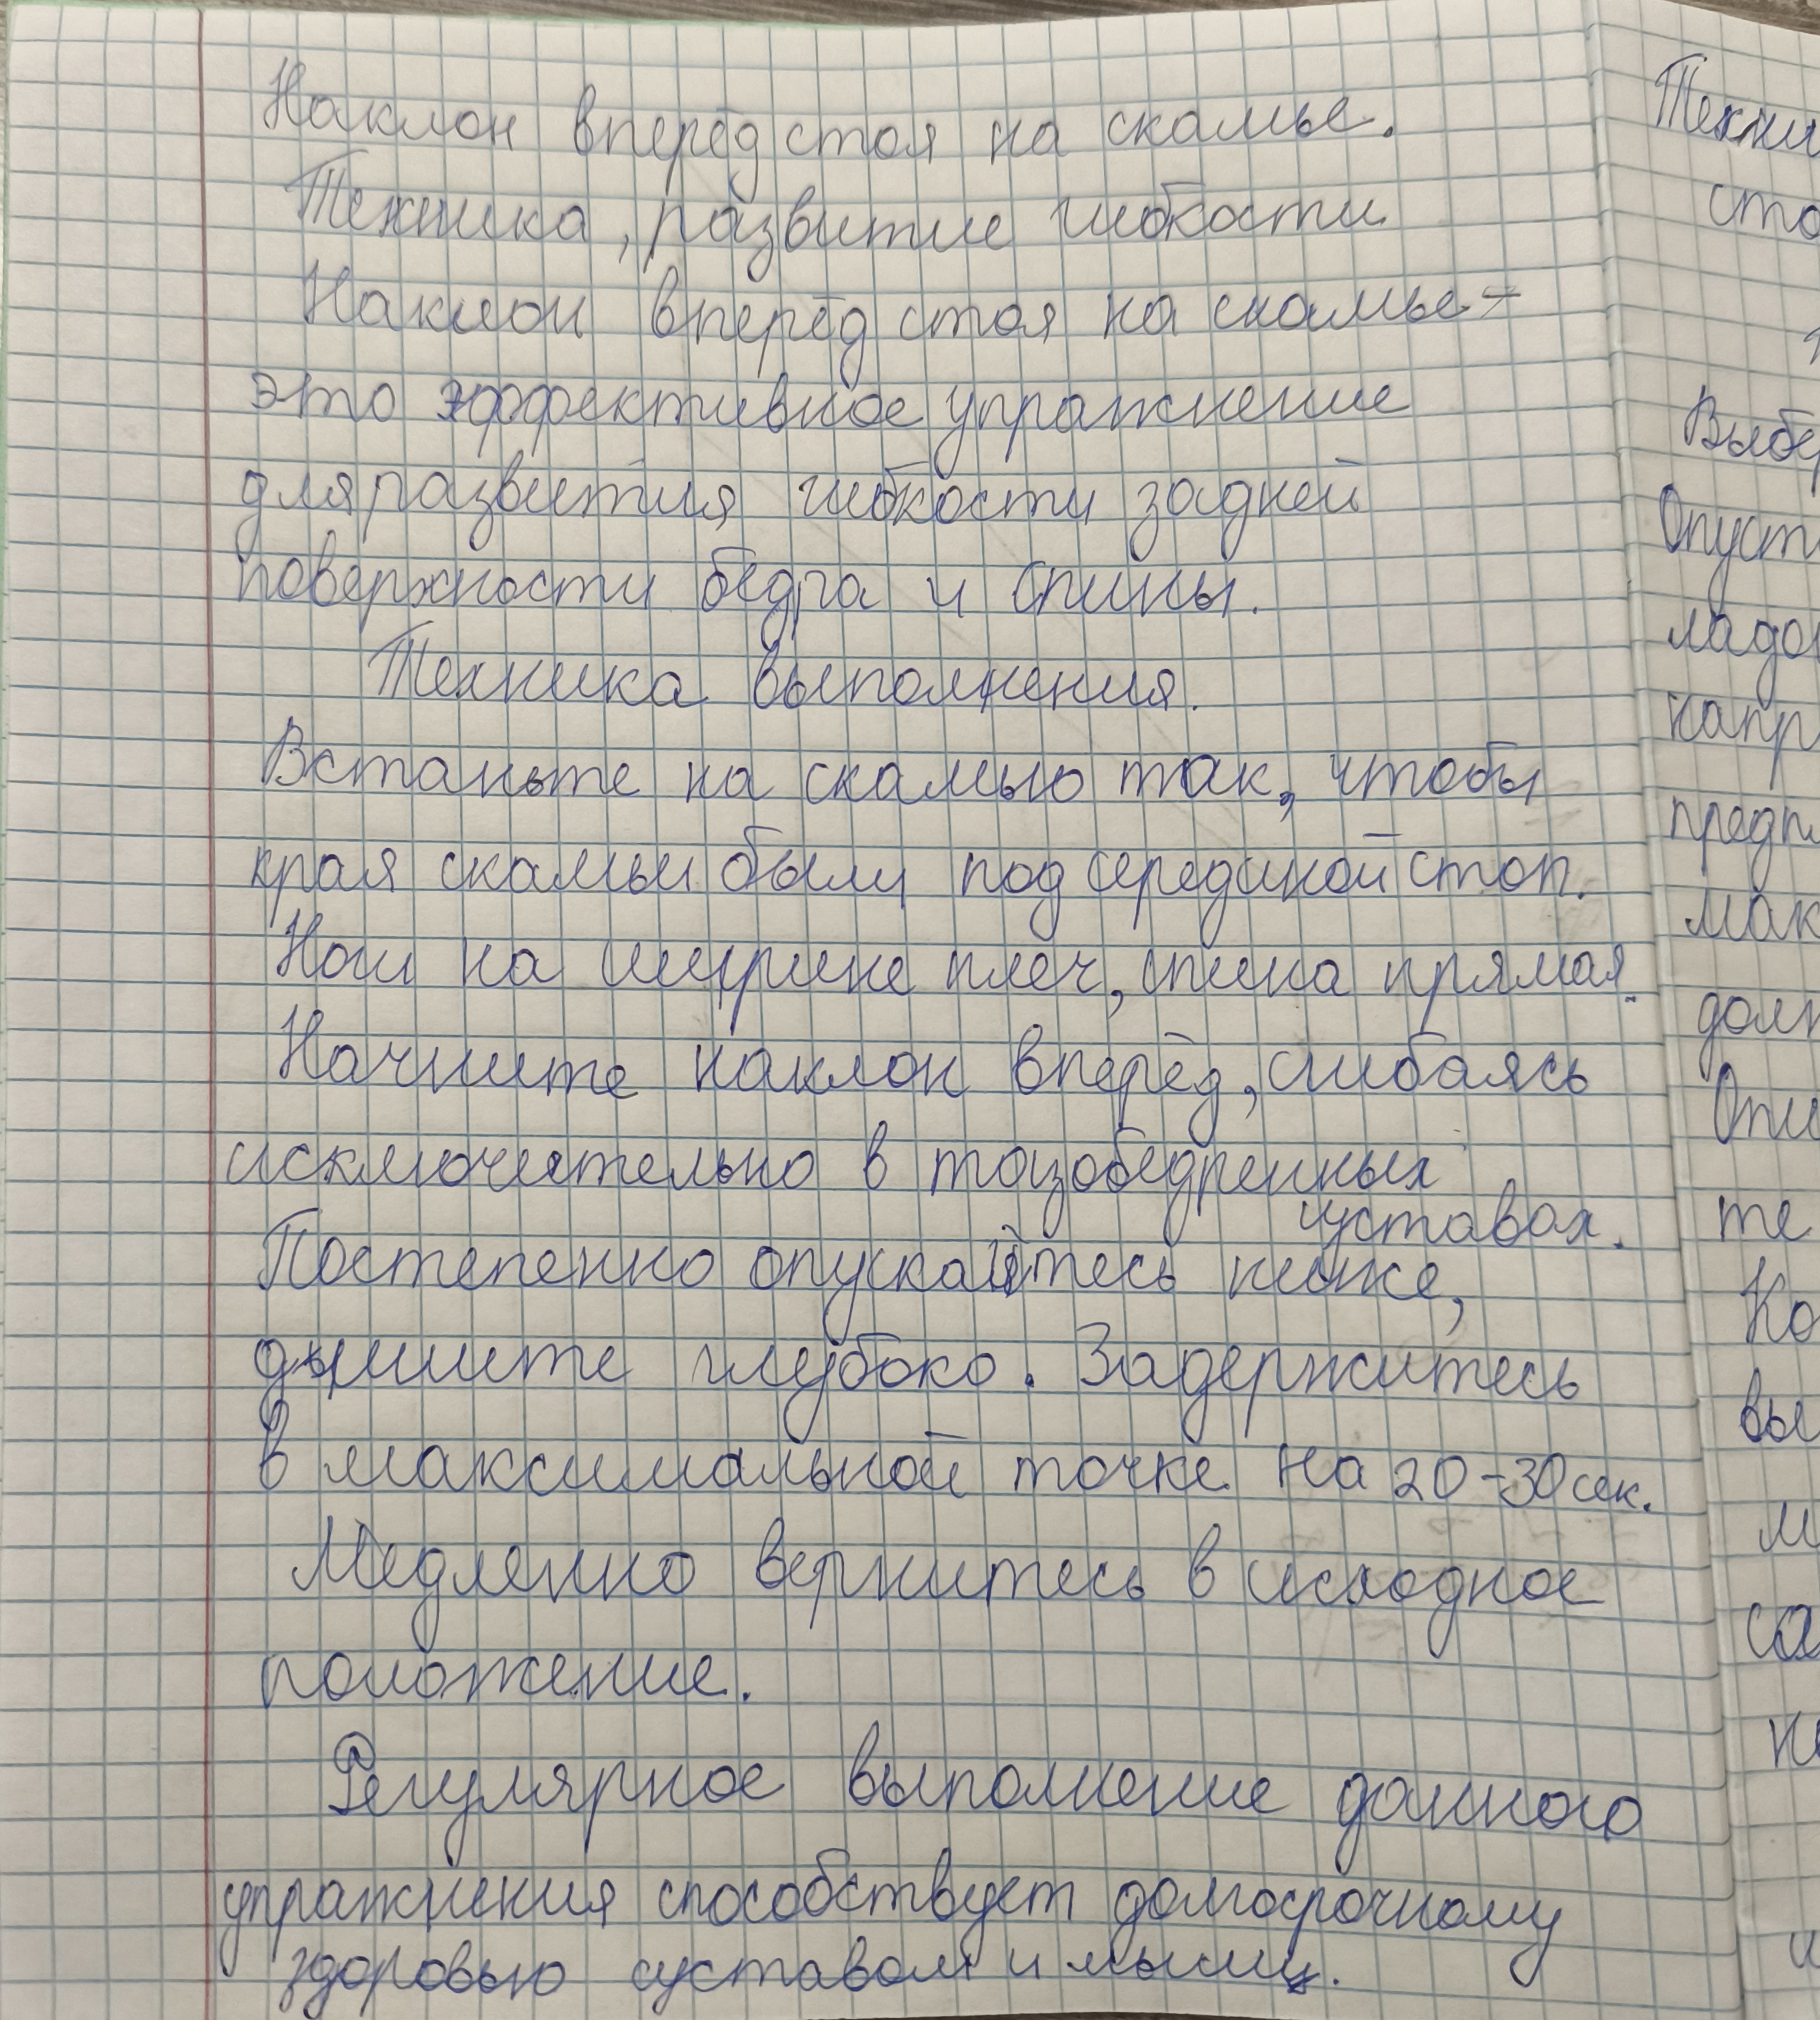 Наклон вперёд стоя на скамье.
Техника, развитие гибкости
Наклон вперёд стоя на скамье -
это эффективное упражнение
для развития гибкости задней
поверхности бедра и спины.
Техника выполнения.
Встаньте на скамью так, чтобы
края скамьи были под серединой стоп.
Ноги на ширине плеч, спина прямая.
Начните наклон вперёд, сгибаясь
исключительно в тазобедренных
суставах.
Постепенно опускайтесь ниже,
дышите глубоко. Задержитесь
в максимальной точке на 20-30 сек.
Медленно вернитесь в исходное
положение.
Регулярное выполнение данного
упражнения способствует долгосрочному
здоровью суставом и мышц.
Техни
сто
Выбер
Опуст
ладо
напр
предп
мак
долж
Опи
те
Ко
вы
м
са
не
и